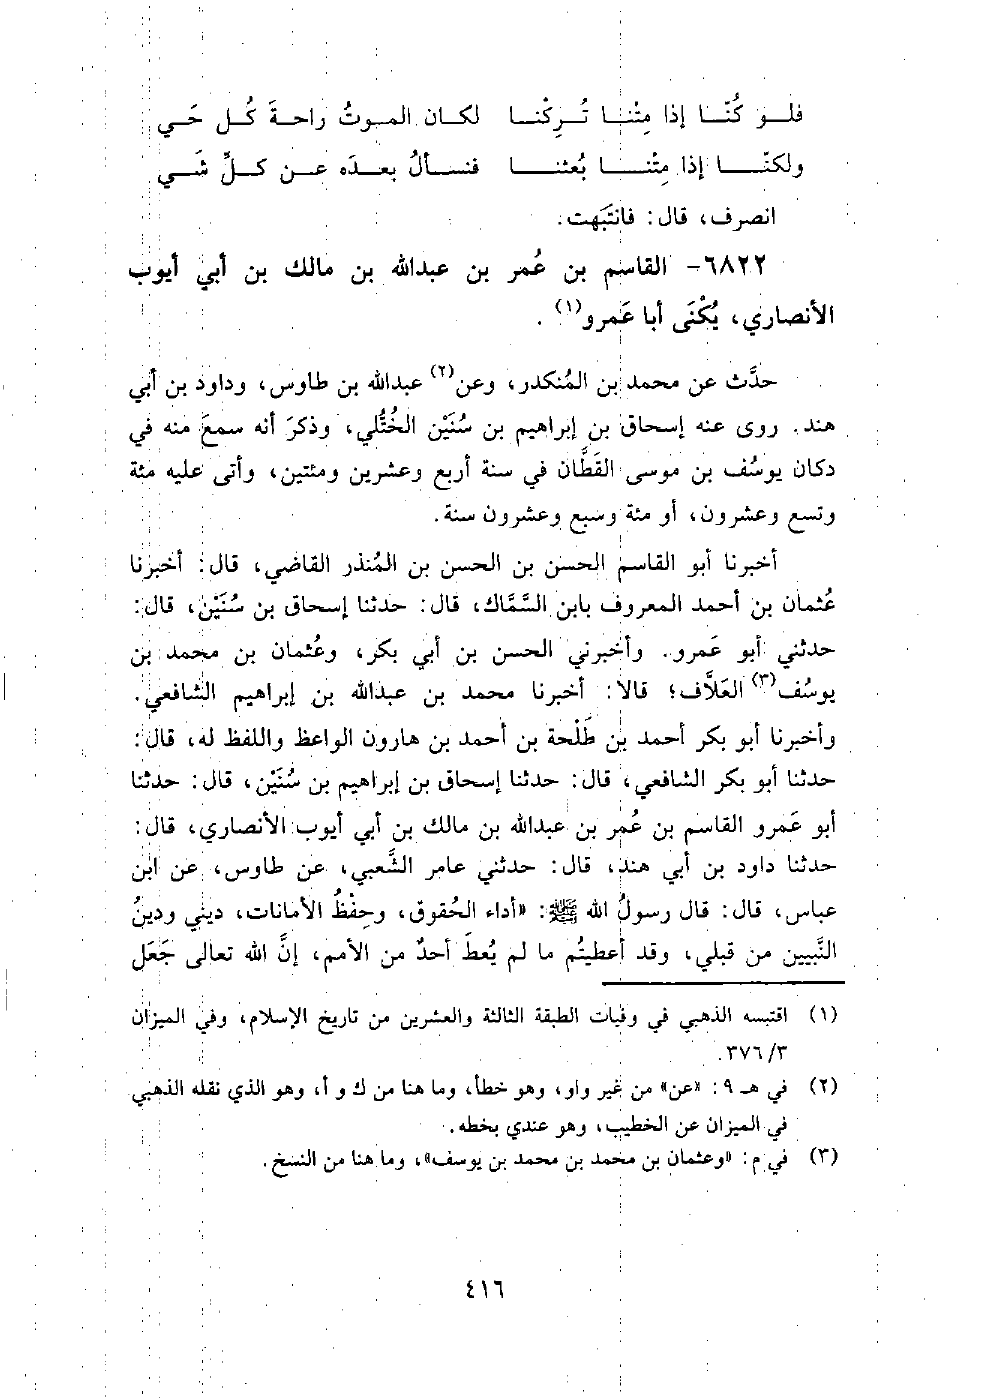 فلو كُنّا إذا مِتْنا تُرِكْنا لكان الموتُ راحةَ كُل حَي
ولكنّا إذا مِتْنا بُعثنا فنسألُ بعدَه عن كلِّ شَي
انصرف، قال: فانتَبَهت.
٦٨٢٢- القاسم بن عُمر بن عبدالله بن مالك بن أبي أيوب
الأنصاري، يُكْنَى أبا عَمرو(١).
حدَّث عن محمد بن المُنكدر، وعن(٢) عبدالله بن طاوس، وداود بن أبي
هند. روى عنه إسحاق بن إبراهيم بن سُنَيْن الخُتُّلي، وذكرَ أنه سمعَ منه في
دكان يوسُف بن موسى القَطَّان في سنة أربع وعشرين ومئتين، وأتى عليه مئة
وتسع وعشرون، أو مئة وسبع وعشرون سنة.
أخبرنا أبو القاسم الحسن بن الحسن بن المُنذر القاضي، قال: أخبرنا
عُثمان بن أحمد المعروف بابن السَّمَّاك، قال: حدثنا إسحاق بن سُنَيْن، قال:
حدثني أبو عَمرو. وأخبرني الحسن بن أبي بكر، وعُثمان بن محمد بن
يوسُف(٣) العَلَّاف؛ قالا: أخبرنا محمد بن عبدالله بن إبراهيم الشافعي.
وأخبرنا أبو بكر أحمد بن طَلْحة بن أحمد بن هارون الواعظ واللفظ له، قال:
حدثنا أبو بكر الشافعي، قال: حدثنا إسحاق بن إبراهيم بن سُنَيْن، قال: حدثنا
أبو عَمرو القاسم بن عُمر بن عبدالله بن مالك بن أبي أيوب الأنصاري، قال:
حدثنا داود بن أبي هند، قال: حدثني عامر الشَّعبي، عن طاوس، عن ابن
عباس، قال: قال رسولُ الله ﷺ: «أداء الحُقوق، وحِفْظُ الأمانات، ديني ودينُ
النَّبيين من قبلي، وقد أعطيتُم ما لم يُعطَ أحدٌ من الأمم، إنَّ الله تعالى جَعَل
(١) اقتبسه الذهبي في وفيات الطبقة الثالثة والعشرين من تاريخ الإسلام، وفي الميزان
٣/ ٣٧٦.
(٢) في هـ ٩: «عن» من غير واو، وهو خطأ، وما هنا من ك و أ، وهو الذي نقله الذهبي
في الميزان عن الخطيب، وهو عندي بخطه.
(٣) في م: «وعثمان بن محمد بن محمد بن يوسف»، وما هنا من النسخ.
٤١٦